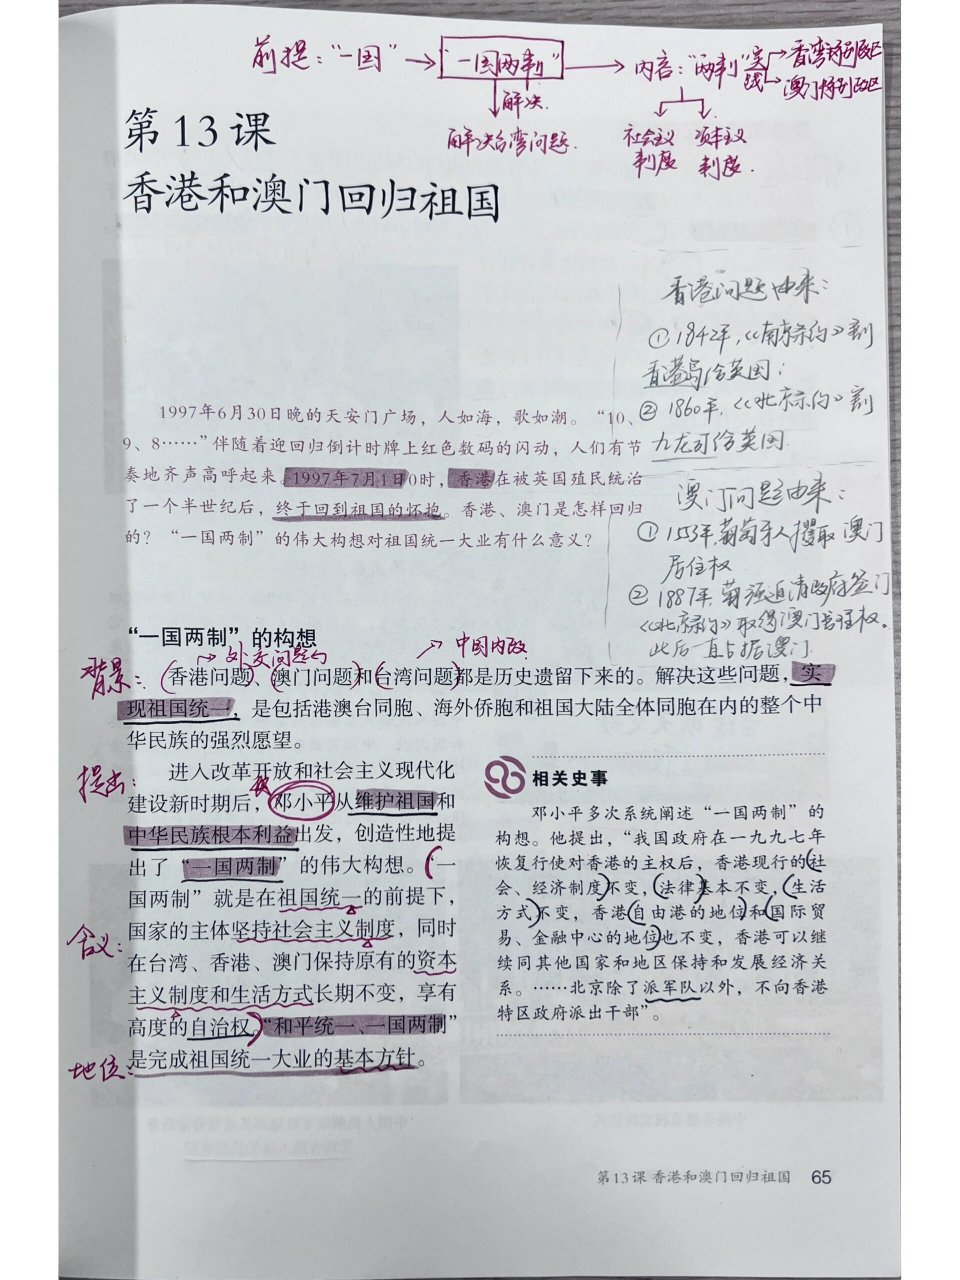 前提：“一国” → “一国两制” → 内容：“两制” 实践 → 香港特别行政区
→ 澳门特别行政区
解决
解决台湾问题.
社会主义制度
资本主义制度.
第13课
香港和澳门回归祖国
香港问题由来：
①1842年,《南京条约》割
香港岛给英国；
②1860年,《北京条约》割
九龙司给英国.
澳门问题由来：
①1553年,葡萄牙人攫取澳门
居住权
②1887年,葡强迫清政府签门
《北京条约》取得澳门管理权。
此后一直占据澳门
1997年6月30日晚的天安门广场，人如海，歌如潮。“10、
9、8……”伴随着迎回归倒计时牌上红色数码的闪动，人们有节
奏地齐声高呼起来。1997年7月1日0时，香港在被英国殖民统治
了一个半世纪后，终于回到祖国的怀抱。香港、澳门是怎样回归
的？“一国两制”的伟大构想对祖国统一大业有什么意义？
“一国两制”的构想
→外交问题
→中国内政
背景：
香港问题、澳门问题和台湾问题都是历史遗留下来的。解决这些问题，实
现祖国统一，是包括港澳台同胞、海外侨胞和祖国大陆全体同胞在内的整个中
华民族的强烈愿望。
提出：
进入改革开放和社会主义现代化
建设新时期后，邓小平从维护祖国和
中华民族根本利益出发，创造性地提
出了“一国两制”的伟大构想。“一
国两制”就是在祖国统一的前提下，
含义：
国家的主体坚持社会主义制度，同时
在台湾、香港、澳门保持原有的资本
主义制度和生活方式长期不变，享有
高度的自治权。“和平统一、一国两制”
地位：
是完成祖国统一大业的基本方针。
相关史事
邓小平多次系统阐述“一国两制”的
构想。他提出，“我国政府在一九九七年
恢复行使对香港的主权后，香港现行的社
会、经济制度不变，法律基本不变，生活
方式不变，香港自由港的地位和国际贸
易、金融中心的地位也不变，香港可以继
续同其他国家和地区保持和发展经济关
系。……北京除了派军队以外，不向香港
特区政府派出干部”。
第13课 香港和澳门回归祖国 65